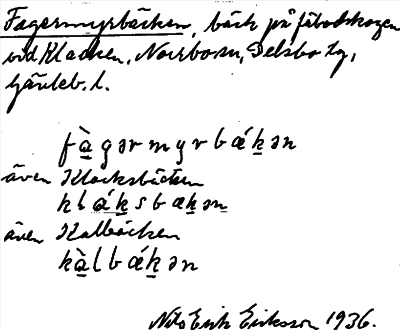 Fagermyrbäcken, bäck på fäbodskogen
vid Klacken, Norrbo sn, Delsbo tg,
Gävleb. l.
fàgərmyrbǽkən
även Klacksbäcken
kláksbækən
även Kallbäcken
kàlbǽkən
Nils Erik Eriksson 1936.